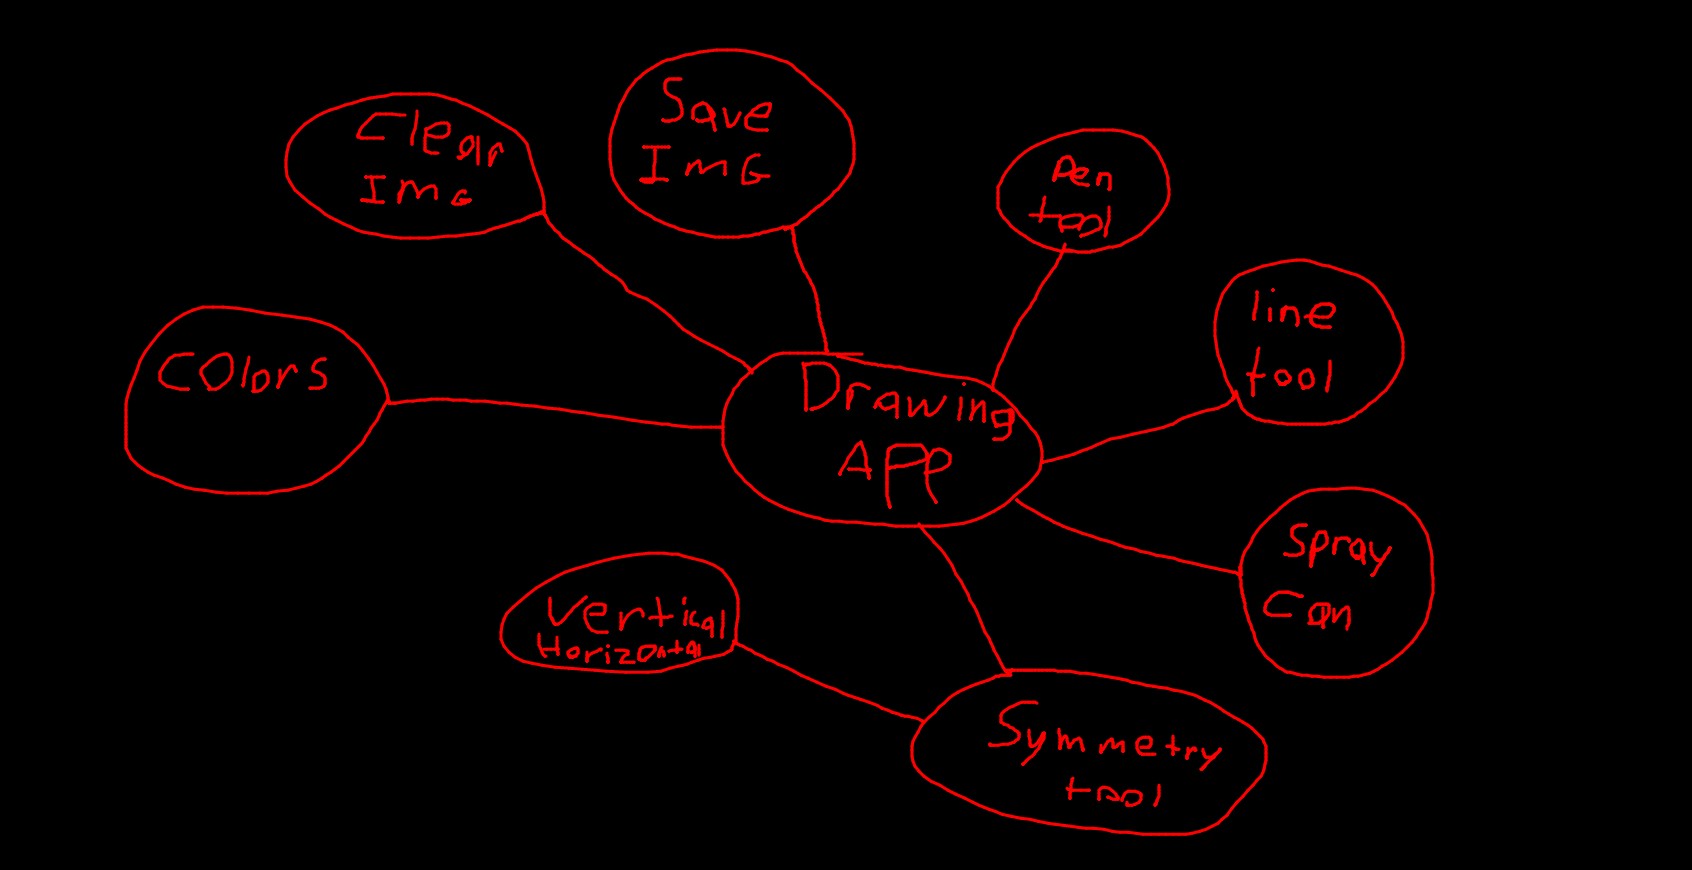 Clear
Img
Save
Img
Pen
tool
line
tool
Colors
Drawing
App
Spray
Can
Vertical
Horizontal
Symmetry
tool